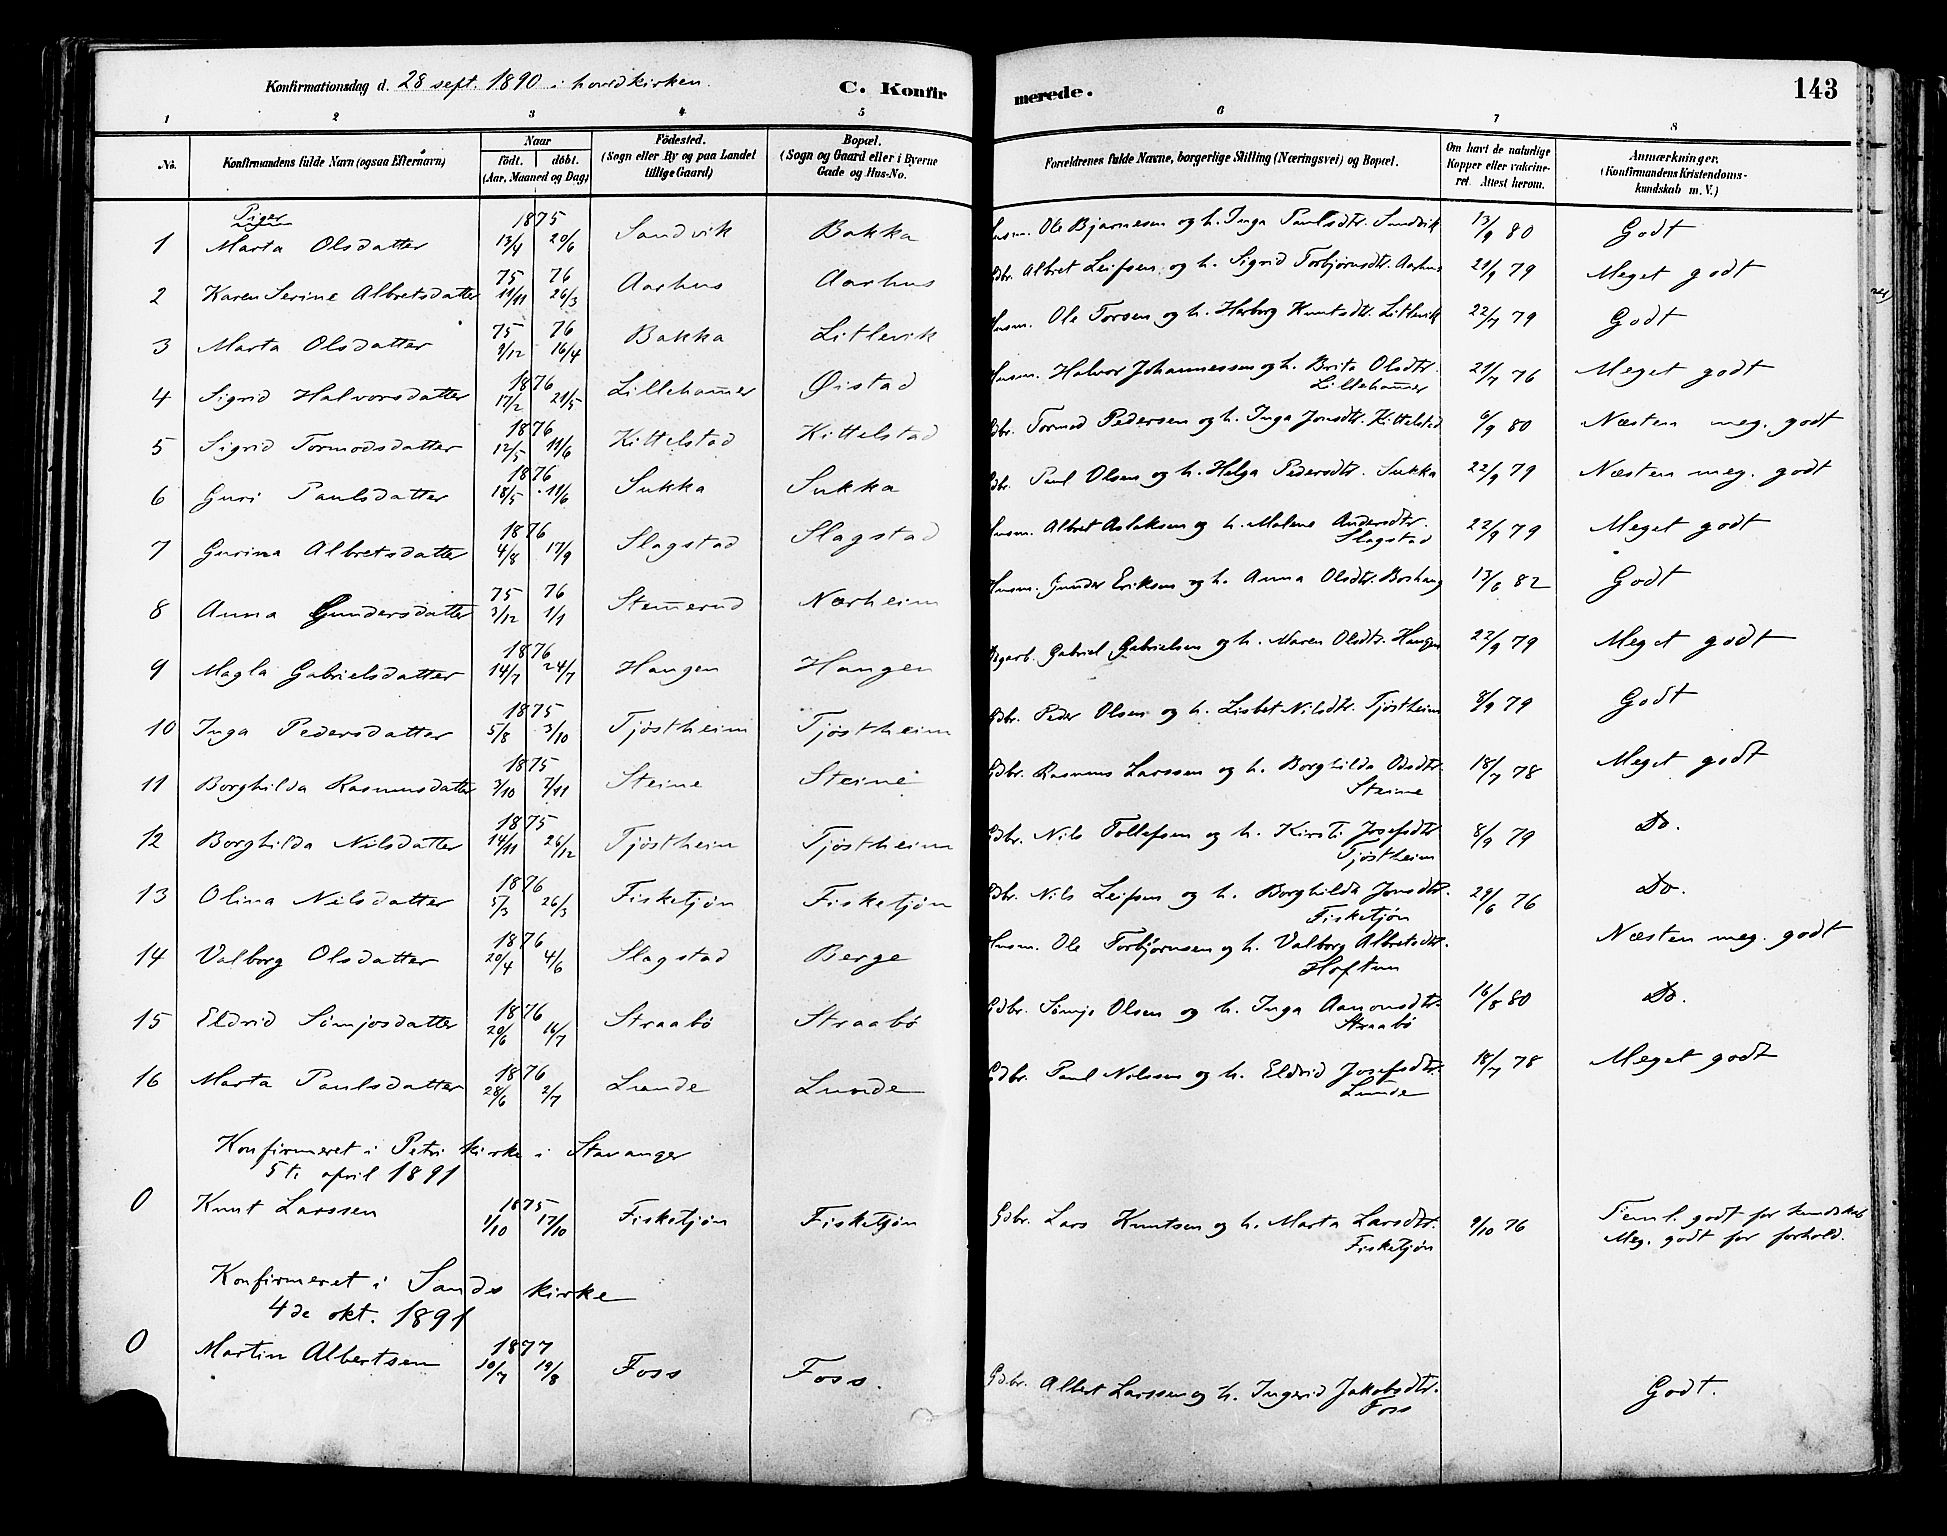 Konfirmationsdag d. 28 sept. 1890 i hovedkirken.
C. Konfirmerede.
143
1 2 3 4 5 6 7 8
No. Konfirmandens fulde Navn (ogsaa Efternavn) Naar födt. döbt. (Aar, Maaned og Dag) Födested. (Sogn eller By og paa Landet tillige Gaard) Bopæl. (Sogn og Gaard eller i Byerne Gade og Hus-No. Forældrenes fulde Navne, borgerlige Stilling (Næringsvei) og Bopæl. Om havt de naturlige Kopper eller vakcineret. Attest herom. Anmærkninger. (Konfirmandens Kristendomskundskab m. V.)
Piger
1 Marta Olsdatter 1875 13/4 20/6 Sandvik Bakka Husm. Ole Bjarnesen og h. Inga Paulsdtr. Sandvik 13/9 80 Godt
2 Karen Serine Albretsdatter 75 11/11 76 26/3 Aarhus Aarhus Gdbr. Albret Leifsen og h. Sigrid Torbjørnsdtr. Aarhus 21/9 79 Meget godt
3 Marta Olsdatter 75 9/12 76 16/4 Bakka Litlevik Husm. Ole Torsen og h. Herborg Knutsdtr. Litlevik 22/7 79 Godt
4 Sigrid Halvorsdatter 1876 17/2 21/5 Lillehammer Øistad Husm. Halvor Johannessen og h. Brita Olsdtr. Lillehammer 21/7 76 Meget godt
5 Sigrid Tormodsdatter 1876 12/5 11/6 Kittelstad Kittelstad Gdbr. Tormod Pedersen og h. Inga Jonsdtr. Kittelstad 6/9 80 Næsten meg. godt
6 Guri Paulsdatter 1876 18/5 11/6 Sukka Sukka Gdbr. Paul Olsen og h. Helga Pedersdtr. Sukka 22/9 79 Næsten meg. godt
7 Gurina Albretsdatter 1876 4/8 17/9 Slagstad Slagstad Husm. Albret Aslaksen og h. Malene Andersdtr. Slagstad 22/9 79 Meget godt
8 Anna Gundersdatter 75 3/12 76 1/1 Stemerud Nærheim Husm. Gunder Eriksen og h. Anna Olsdtr. Boshaug 13/6 82 Godt
9 Magla Gabrielsdatter 1876 14/7 24/7 Haugen Haugen Gabriel Gabrielsen og h. Maren Olsdtr. Haugen 22/9 79 Meget godt
10 Inga Pedersdatter 1875 5/8 3/10 Tjøstheim Tjøstheim Gdbr. Peder Olsen og h. Lisbet Nilsdtr. Tjøstheim 8/9 79 Godt
11 Borghilda Rasmusdatter 1875 3/10 7/11 Steine Steine Gdbr. Rasmus Larssen og h. Borghilda Olsdtr. Steine 18/7 78 Meget godt
12 Borghilda Nilsdatter 1875 14/11 26/12 Tjøstheim Tjøstheim Gdbr. Nils Tollefsen og h. Kirsti Josefsdtr. Tjøstheim 8/9 79 Do.
13 Olina Nilsdatter 1876 5/3 26/3 Fisketjøn Fisketjøn Gdbr. Nils Leifsen og h. Borghilda Jonsdtr. Fisketjøn 29/6 76 Do.
14 Valborg Olsdatter 1876 20/4 4/6 Slagstad Berge Husm. Ole Torbjørnsen og h. Valborg Albretsdtr. Hoftun Næsten meg. godt
15 Eldrid Sømjosdatter 1876 20/6 16/7 Straabø Straabø Gdbr. Sømje Olsen og h. Inga Aamonsdtr. Straabø 16/8 80 Do.
16 Marta Paulsdatter 1876 28/6 2/7 Lunde Lunde Gdbr. Paul Nilssen og h. Eldrid Josefsdtr. Lunde 18/7 78 Meget godt
Konfirmeret i Petri kirke i Stavanger
5te april 1891
0 Knut Larssen 1875 1/10 17/10 Fisketjøn Fisketjøn Gdbr. Lars Knutsen og h. Marta Larsdtr. Fisketjøn 9/10 76 Teml. godt for kundskab Meg. godt for forhold.
Konfirmeret i Sands kirke
4de okt. 1891
0 Martin Albertsen 1877 10/7 19/8 Foss Foss. Gdbr. Albert Larssen og h. Ingerid Jakobsdtr. Foss Godt.